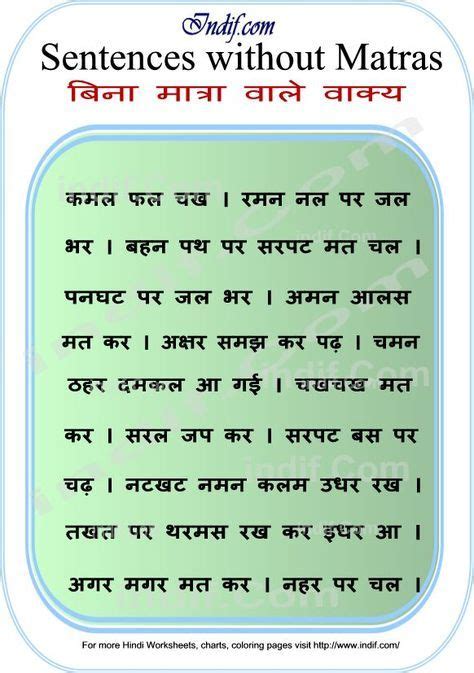 Indif.com
Sentences without Matras
बिना मात्रा वाले वाक्य
कमल फल चख । रमन नल पर जल
भर । बहन पथ पर सरपट मत चल ।
पनघट पर जल भर । अमन आलस
मत कर । अक्षर समझ कर पढ़ । चमन
ठहर दमकल आ गई । चखचख मत
कर । सरल जप कर । सरपट बस पर
चढ़ । नटखट नमन कलम उधर रख ।
तखत पर थरमस रख कर इधर आ ।
अगर मगर मत कर । नहर पर चल ।
For more Hindi Worksheets, charts, coloring pages visit http://www.indif.com/